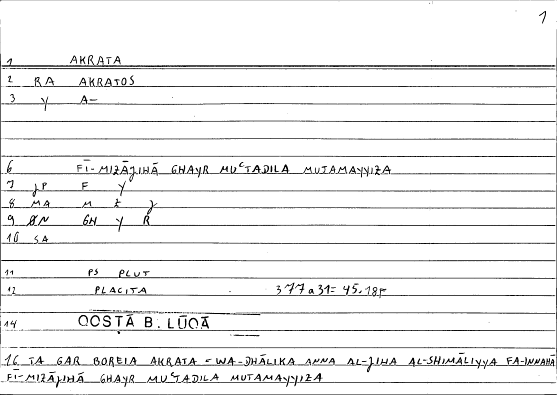 1
1 AKRATA
2 RA AKRATOS
3 Y A-
6 FĪ-MIZĀJIHĀ GHAYR MUʿTADILA MUTAMAYYIZA
7 JP F Y
8 MA M Z J
9 ØN GH Y R
10 SA
11 PS PLUT
12 PLACITA 377a31= 45.18f
14 QOSṬĀ B. LŪQĀ
16 TA GAR BOREIA AKRATA = WA-DHĀLIKA ANNA AL-JIHA AL-SHIMĀLIYYA FA-INNAHĀ
FĪ-MIZĀJIHĀ GHAYR MUʿTADILA MUTAMAYYIZA